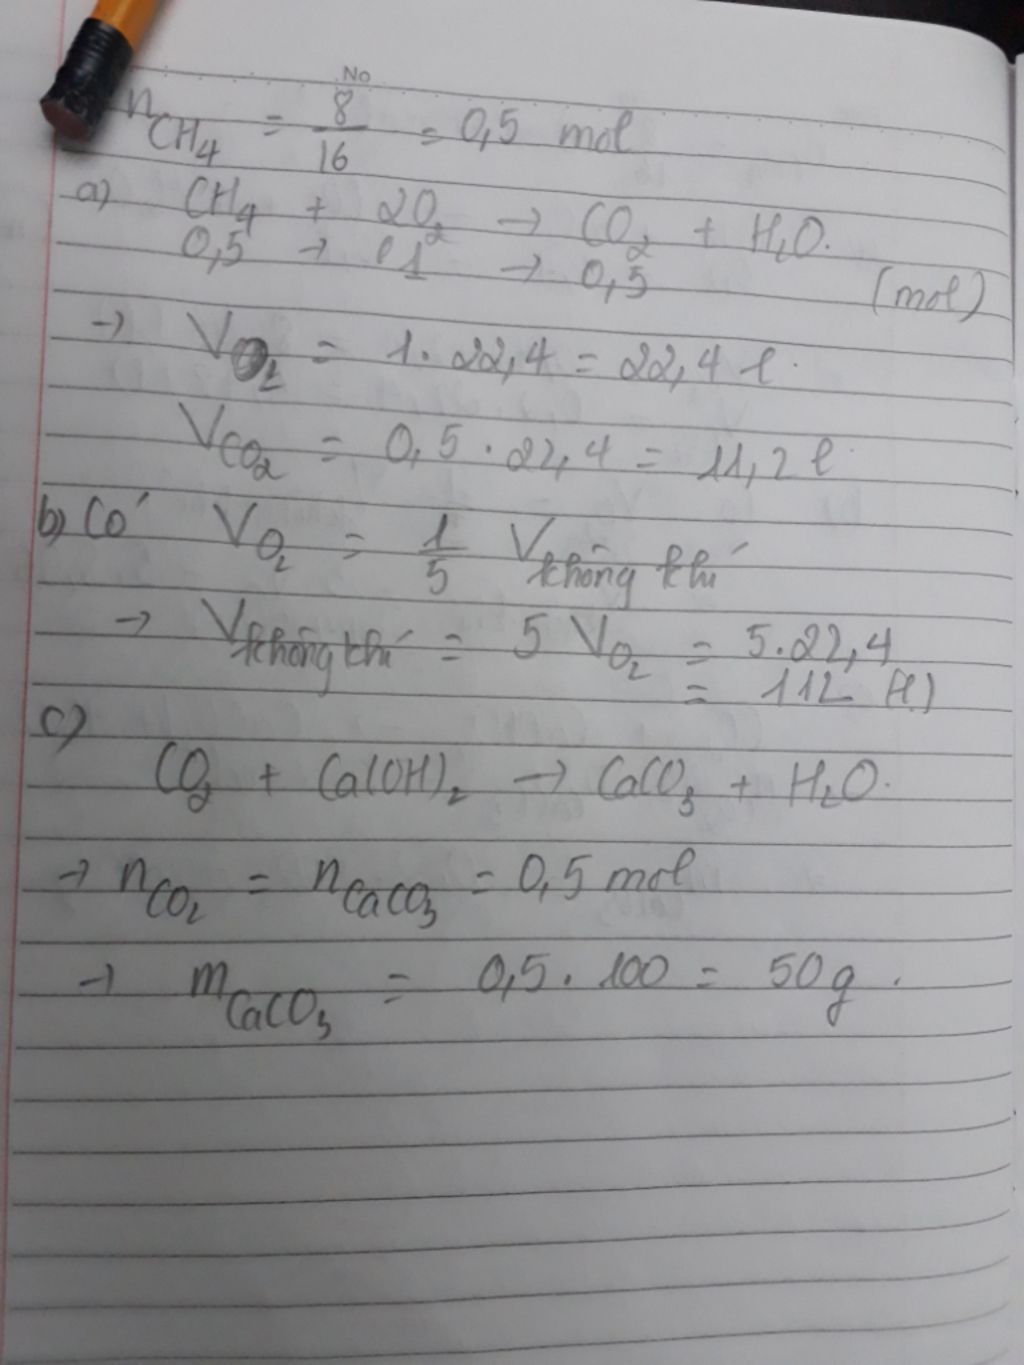 No
nCH₄ = 8/16 = 0,5 mol
a) CH₄ + 2O₂ → CO₂ + H₂O.
0,5 → 1 → 0,5 (mol)
→ VO₂ = 1.22,4 = 22,4 l.
VCO₂ = 0,5.22,4 = 11,2 l
b) Có VO₂ = 1/5 Vkhông khí
→ Vkhông khí = 5 VO₂ = 5.22,4
= 112 (l)
c)
CO₂ + Ca(OH)₂ → CaCO₃ + H₂O.
→ nCO₂ = nCaCO₃ = 0,5 mol
→ mCaCO₃ = 0,5.100 = 50g.